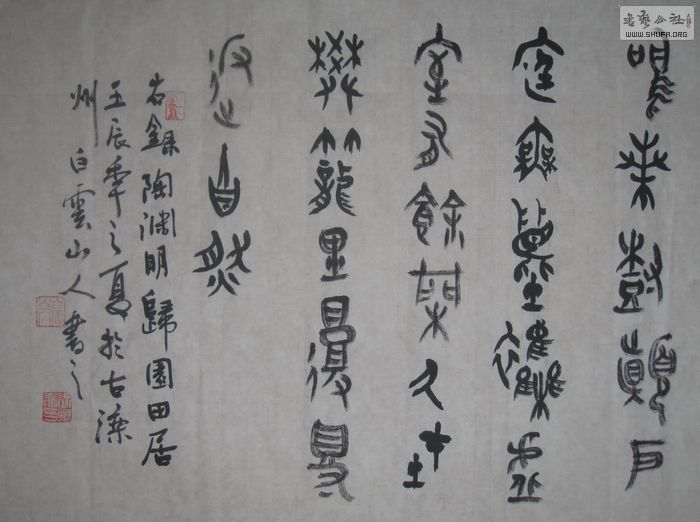 鳴桑樹顛戶
庭無塵雜虛
室有餘閑久在
樊籠里復得
返自然
右錄陶淵明歸園田居
壬辰年之夏於古
州白雲山人書之
書藝公社
WWW.SHUFA.ORG